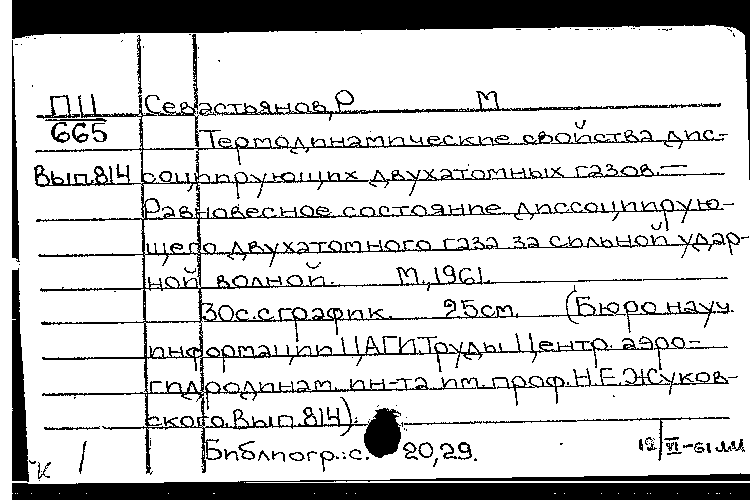 П11 Севастьянов, Р М
665 Термодинамические свойства дис-
Вып.814 социирующих двухатомных газов.—
Равновесное состояние диссоциирую-
щего двухатомного газа за сильной удар-
ной волной. М., 1961.
30с. с график. 25см. (Бюро науч.
информации ЦАГИ. Труды Центр. аэро-
гидродинам. ин-та им. проф. Н.Е. Жуков-
ского. Вып. 814).
Библиогр.: с. 20, 29.
12/VI-61
к /